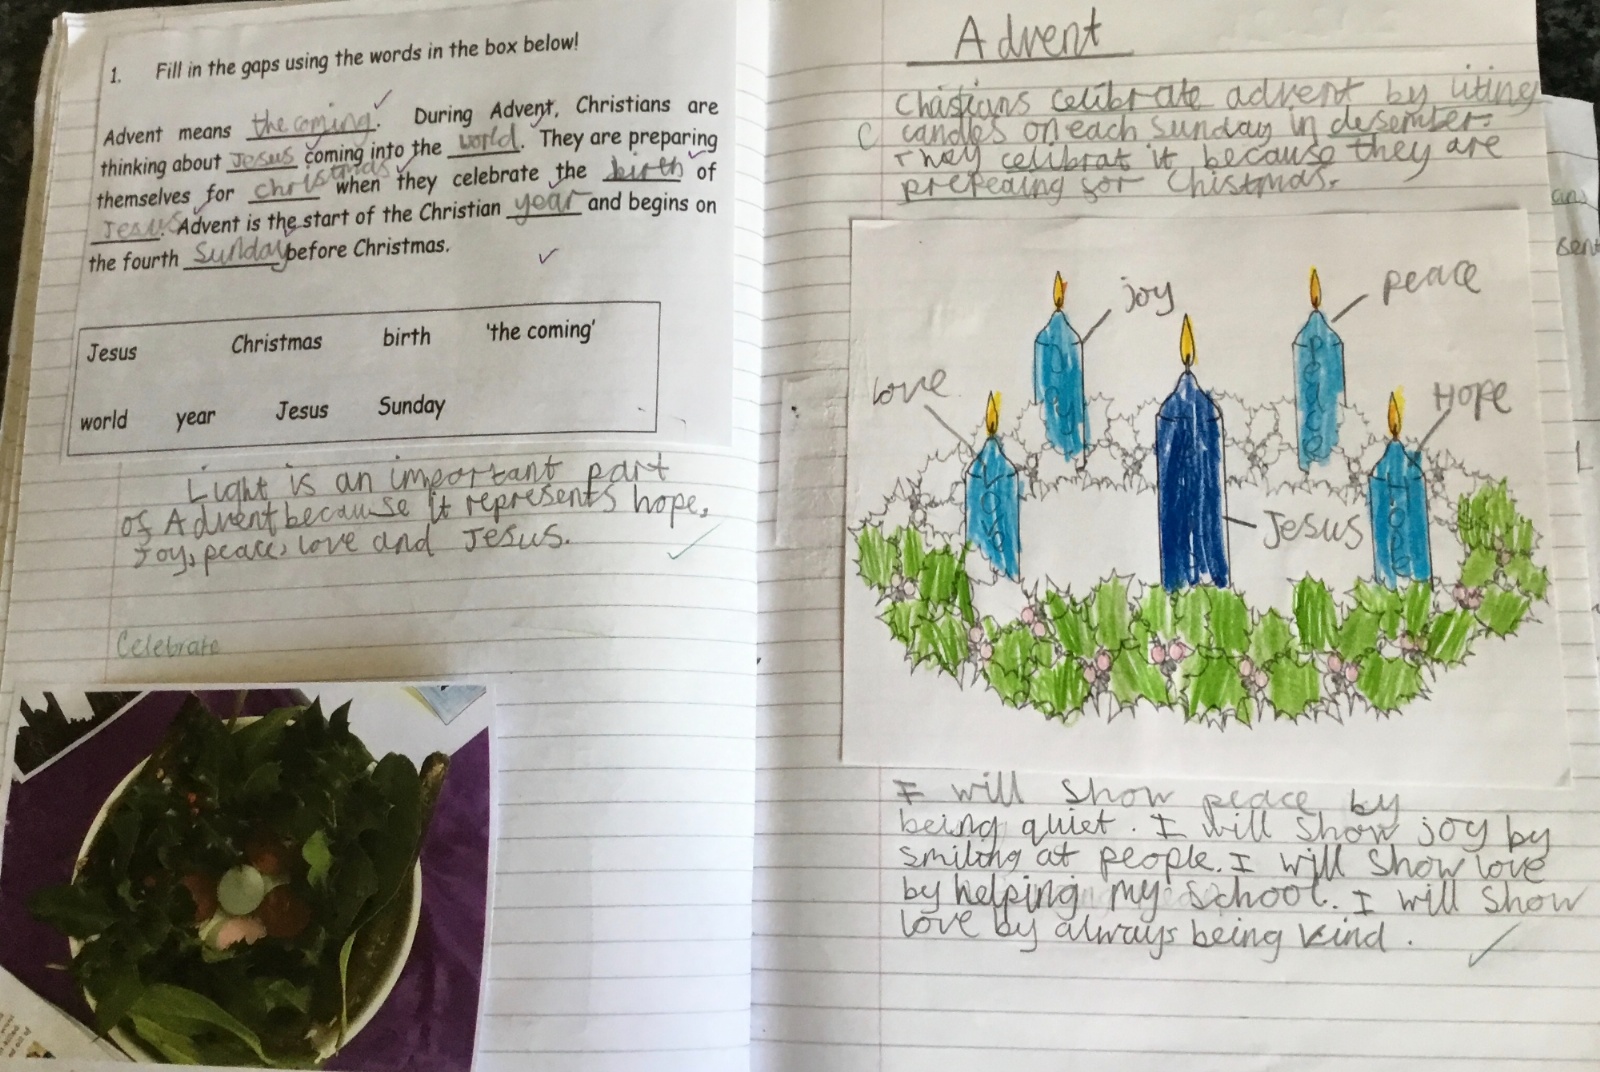 1. Fill in the gaps using the words in the box below!
Advent means the coming. During Advent, Christians are
thinking about Jesus coming into the world. They are preparing
themselves for christmas when they celebrate the birth of
Jesus. Advent is the start of the Christian year and begins on
the fourth Sunday before Christmas.
Jesus Christmas birth 'the coming'
world year Jesus Sunday
Light is an important part
of Advent because it represents hope,
Joy, peace, love and Jesus.
Celebrate
Advent
Chistians celibrate advent by liting
C candles on each Sunday in desember.
They celibrat it because they are
prepeding for Chistmas.
joy
peace
love
Hope
Jesus
Joy
Peace
Love
Hope
I will show peace by
being quiet. I will show joy by
smiling at people. I will show love
by helping my school. I will show
love by always being kind.